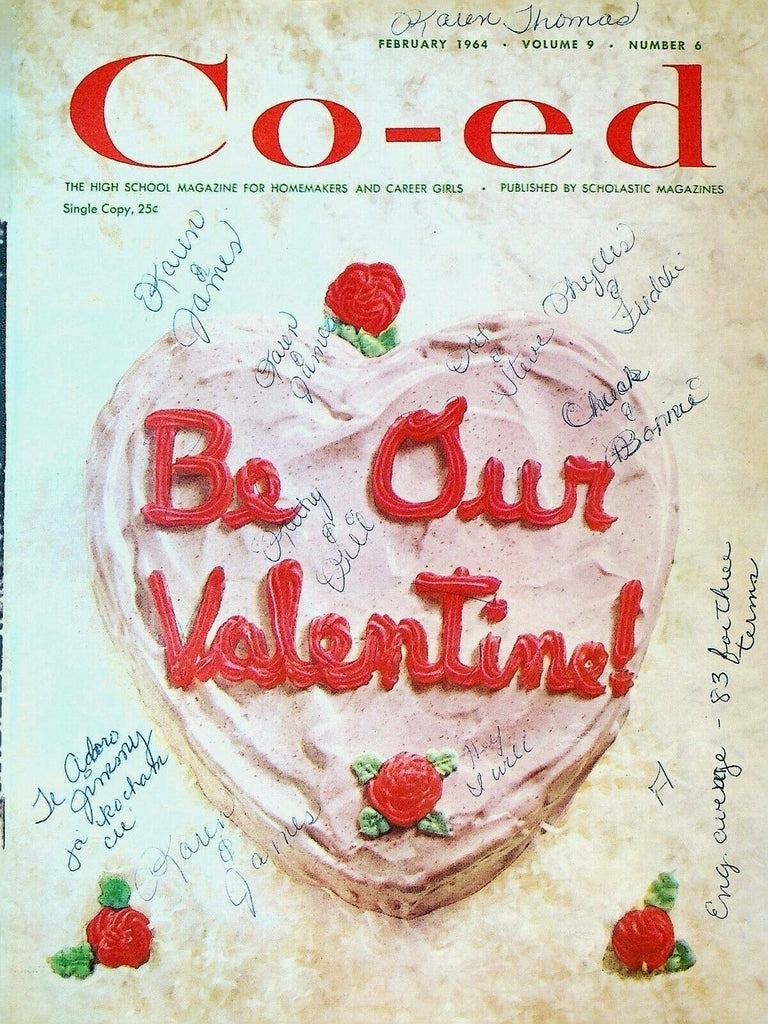 Karen Thomas
FEBRUARY 1964 • VOLUME 9 • NUMBER 6
Co-ed
THE HIGH SCHOOL MAGAZINE FOR HOMEMAKERS AND CAREER GIRLS • PUBLISHED BY SCHOLASTIC MAGAZINES
Single Copy, 25¢
Karen
&
James
Phyllis
&
Freddie
Karen
&
James
Pat
&
Steve
Chuck
&
Bonnie
Be Our
Kathy
&
Bill
Valentine!
Eng. average - 83 for three
terms
Te Adoro
Jimmy
ja kocham
cie
I will
Karen
&
James